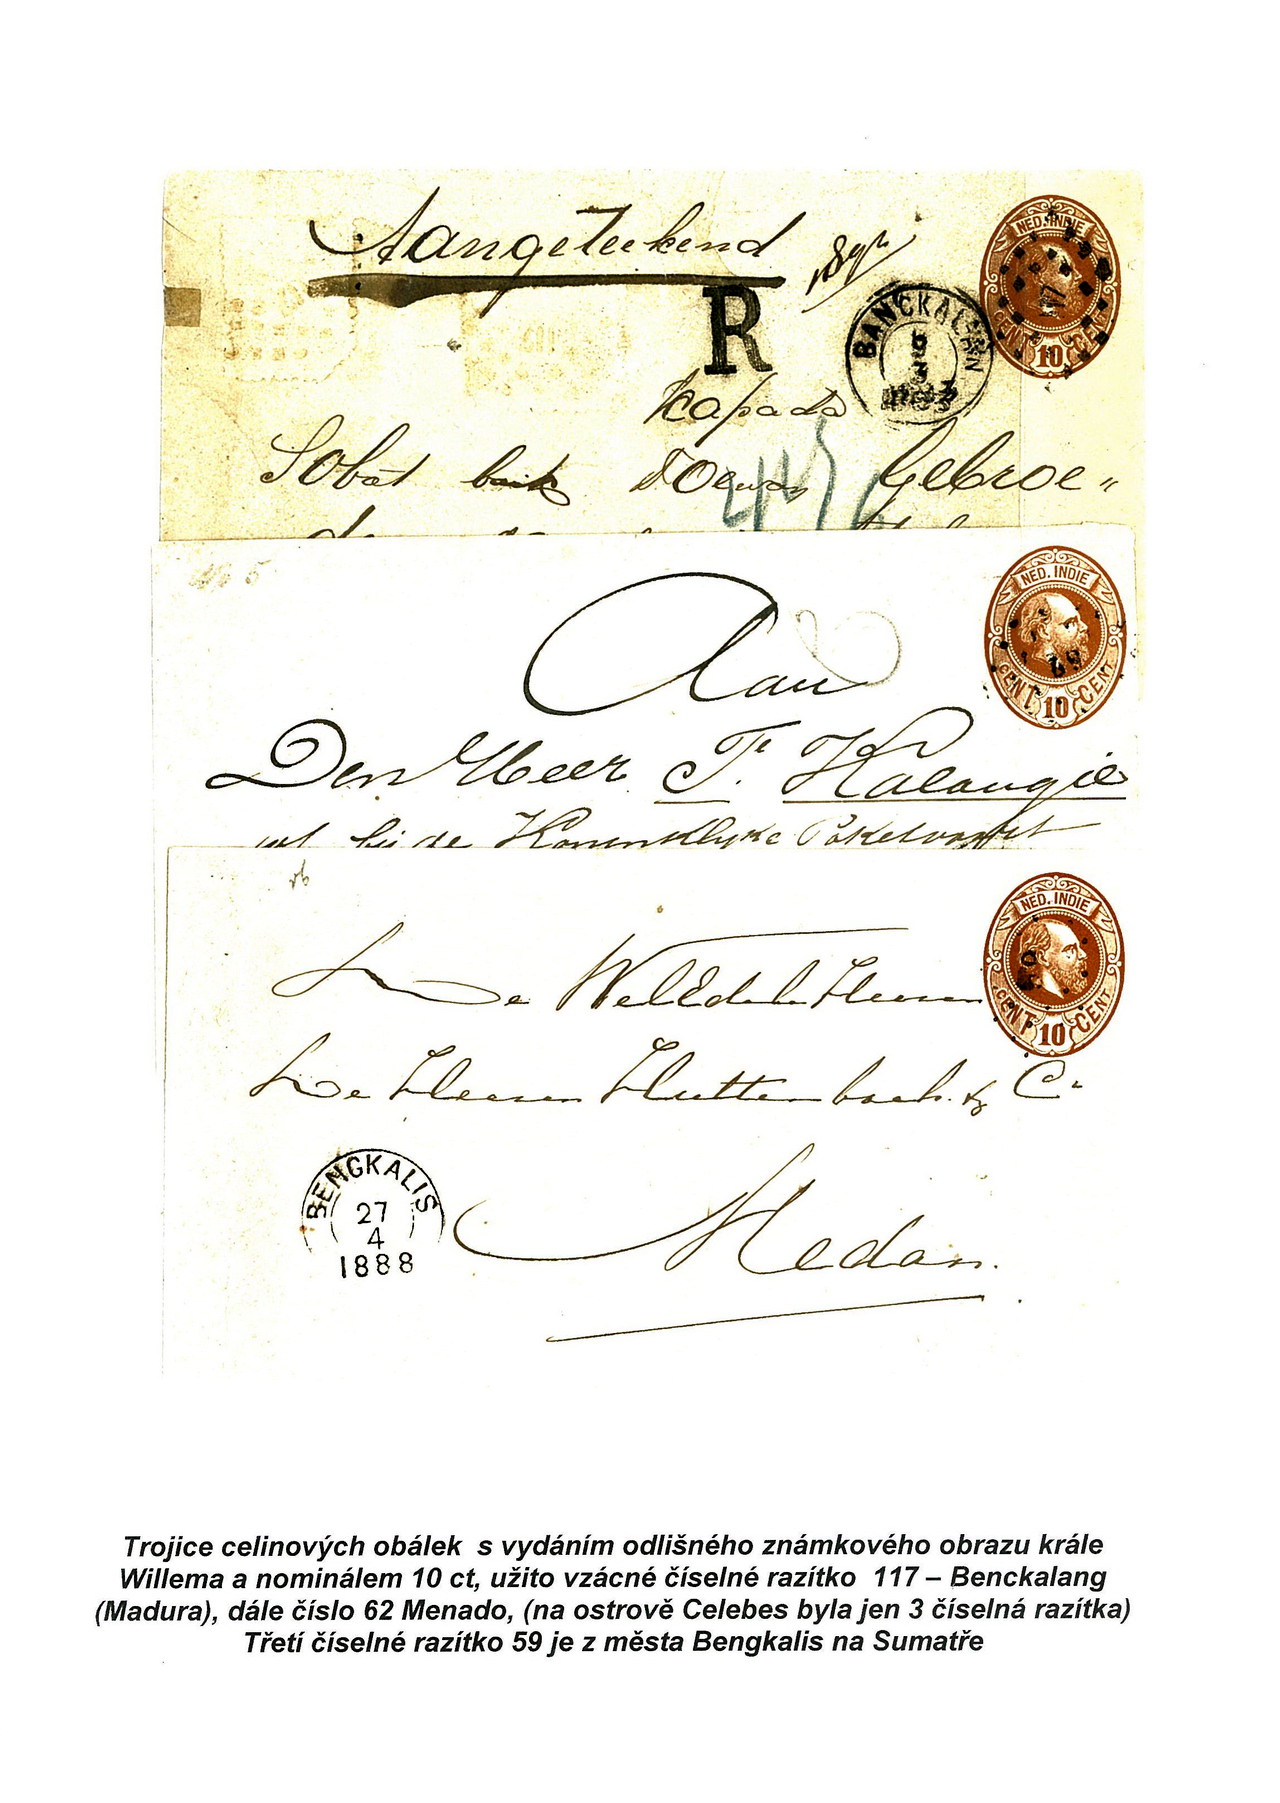 Aangeteekend
R
NED. INDIE
CENT 10 CENT
117
BANCKALANN
5
3
Kapada
Sobat baik Toewan Gebroe„
No 5
NED. INDIE
CENT 10 CENT
62
Aan
Den Heer F. Kalangie
bij de Koninklyke Paketvaart
NED. INDIE
CENT 10 CENT
59
De WelEdele Heeren
De Heeren Huttenbach & Co
BENGKALIS
27
4
1888
Medan.
Trojice celinových obálek s vydáním odlišného známkového obrazu krále
Willema a nominálem 10 ct, užito vzácné číselné razítko 117 – Benckalang
(Madura), dále číslo 62 Menado, (na ostrově Celebes byla jen 3 číselná razítka)
Třetí číselné razítko 59 je z města Bengkalis na Sumatře